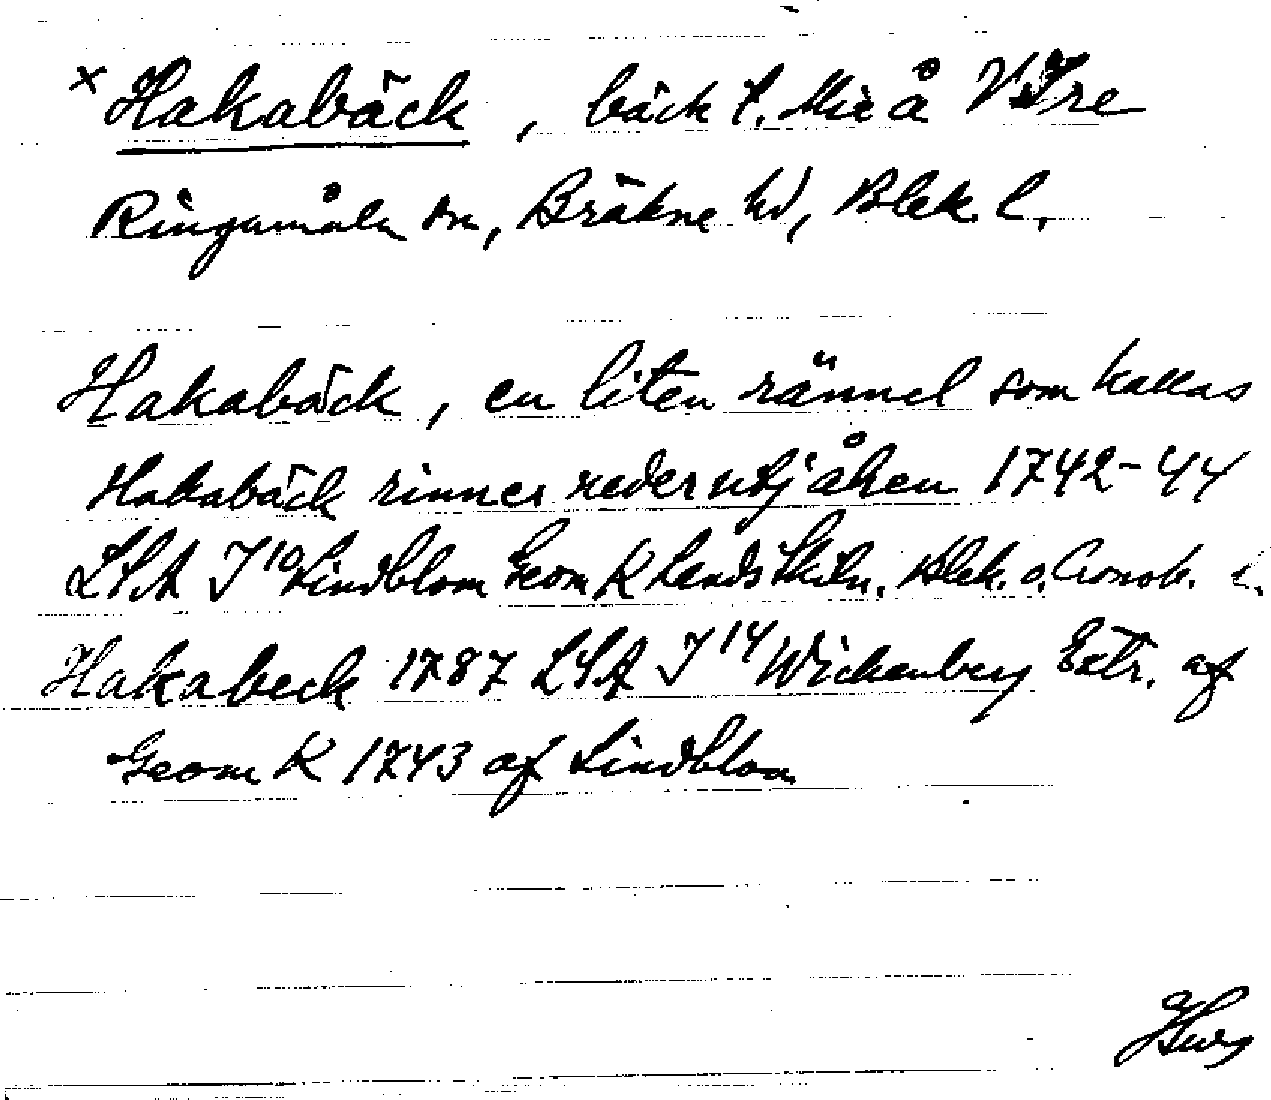 × Hakabäck, bäck t. Mieå
Ringamåla sn, Bräkne hd, Blek. l.
Hakabäck, en liten rännel som kallas
Hakabäck rinner neder uti åhen 1742-44
LSA J10 Lindblom Geom K Lands Skiln. Blek. o. Cronob. l.
Hakabeck 1787 LSA J14 Wickenberg Extr. af
Geom K 1743 af Lindblom